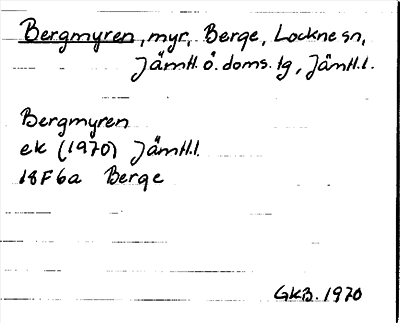 Bergmyren, myr, Berge, Lockne sn,
Jämtl. ö. doms. tg, Jämtl. l.
Bergmyren
ek (1970) Jämtl. l.
18F6a Berge
GKB. 1970